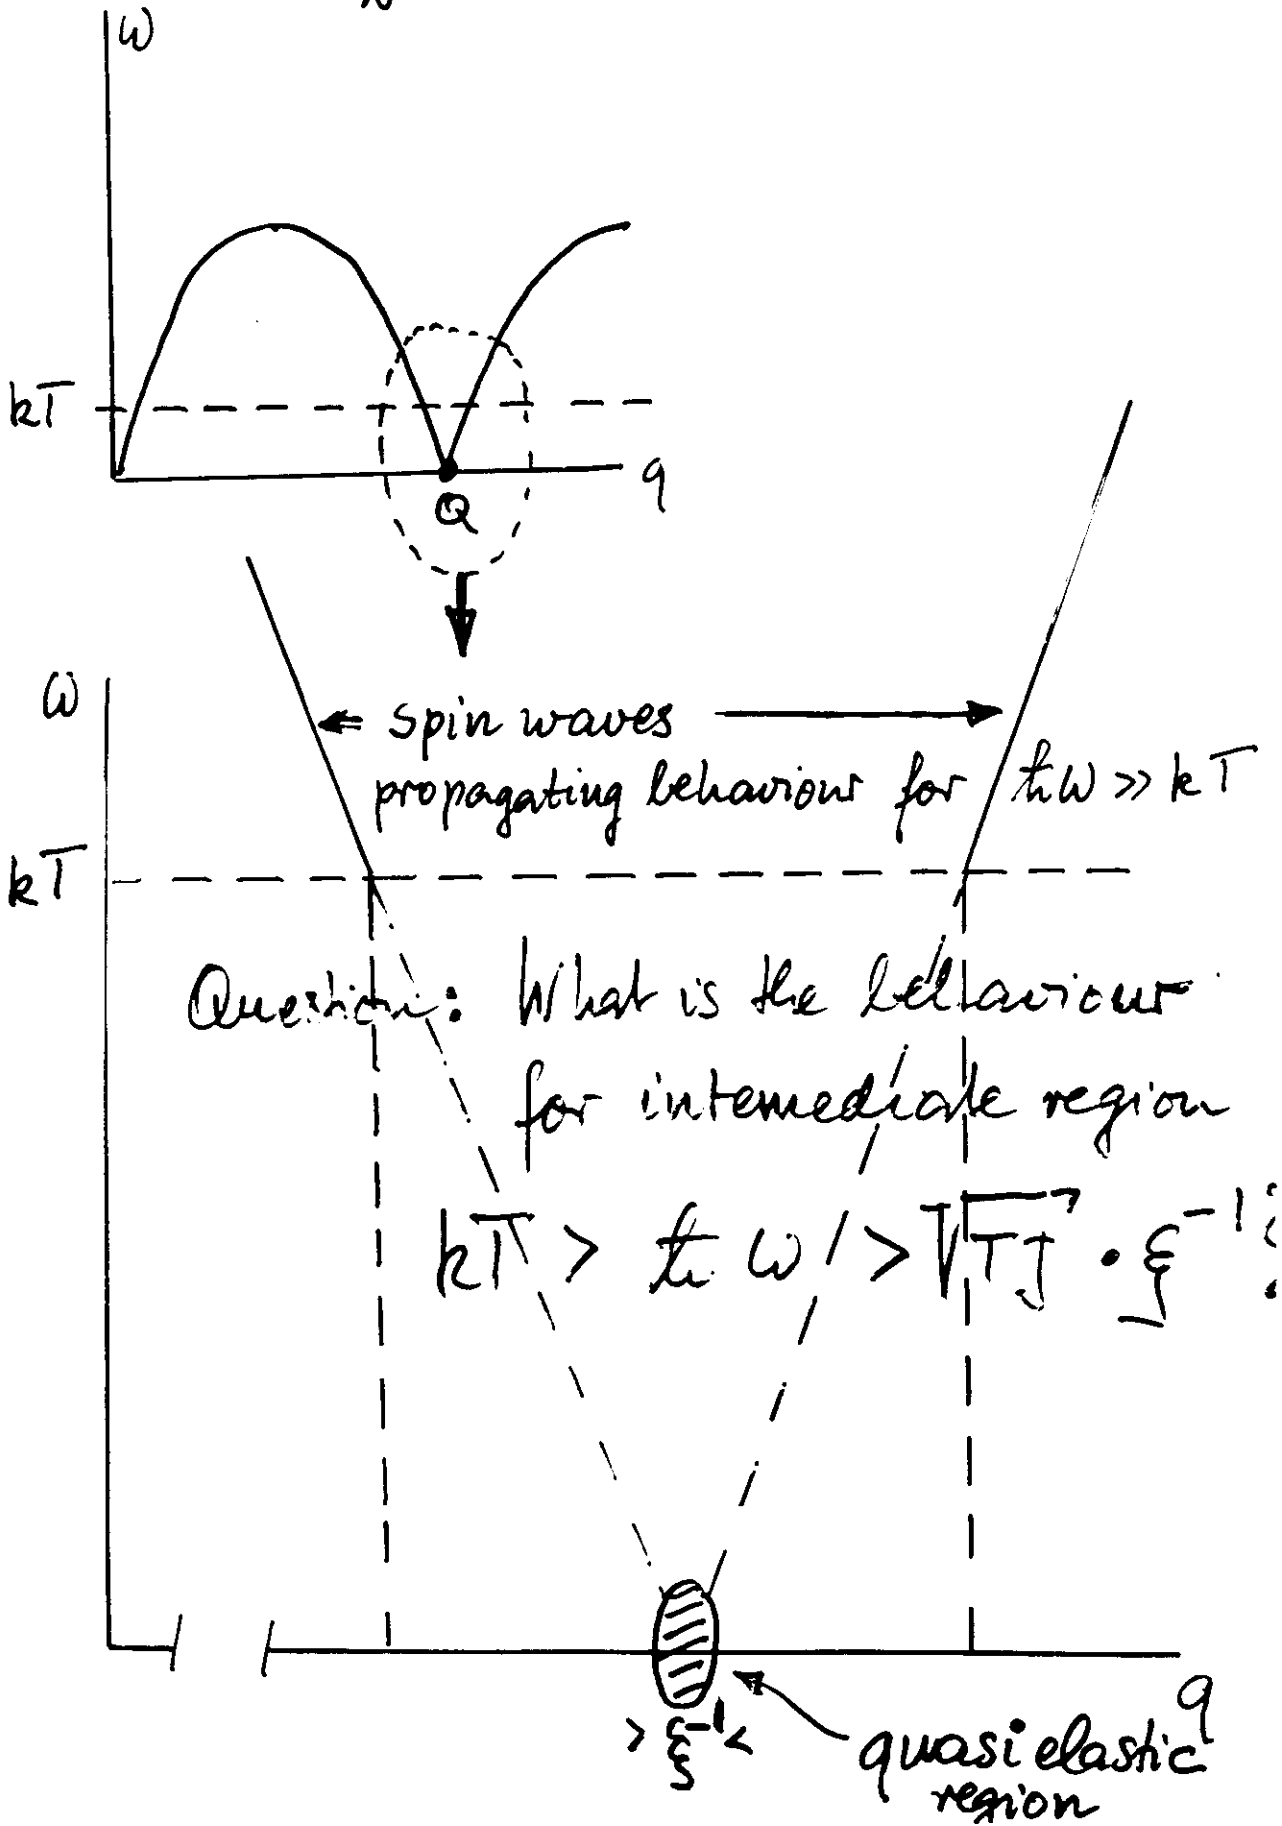 ω
kT
q
Q
ω
spin waves
propagating behaviour for ħω >> kT
kT
Question: What is the behaviour
for intemediate region
kT > ħω > √TJ · ξ⁻¹?
q
> ξ⁻¹ <
quasielastic
region